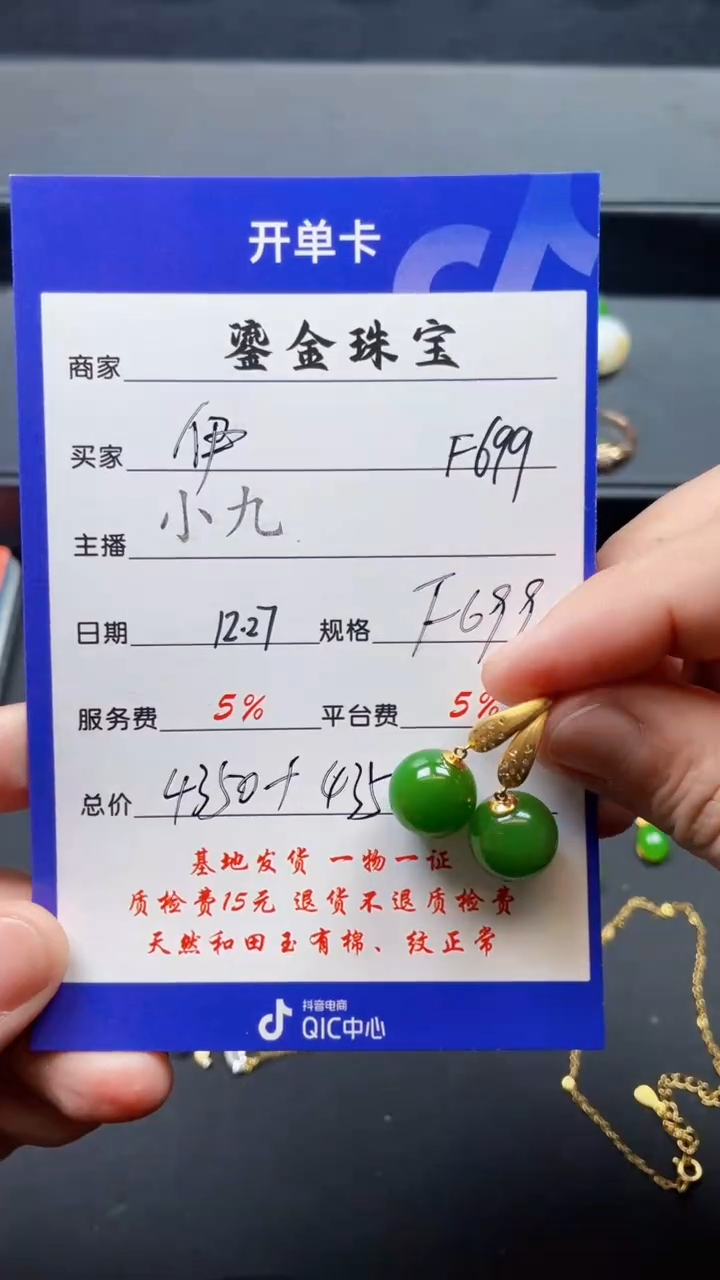 开单卡
商家 鎏金珠宝
买家 伊 F699
主播 小九
日期 12.27 规格 F699
服务费 5% 平台费 5%
总价 4350+435
基地发货 一物一证
质检费15元 退货不退质检费
天然和田玉有棉、纹正常
抖音电商
QIC中心